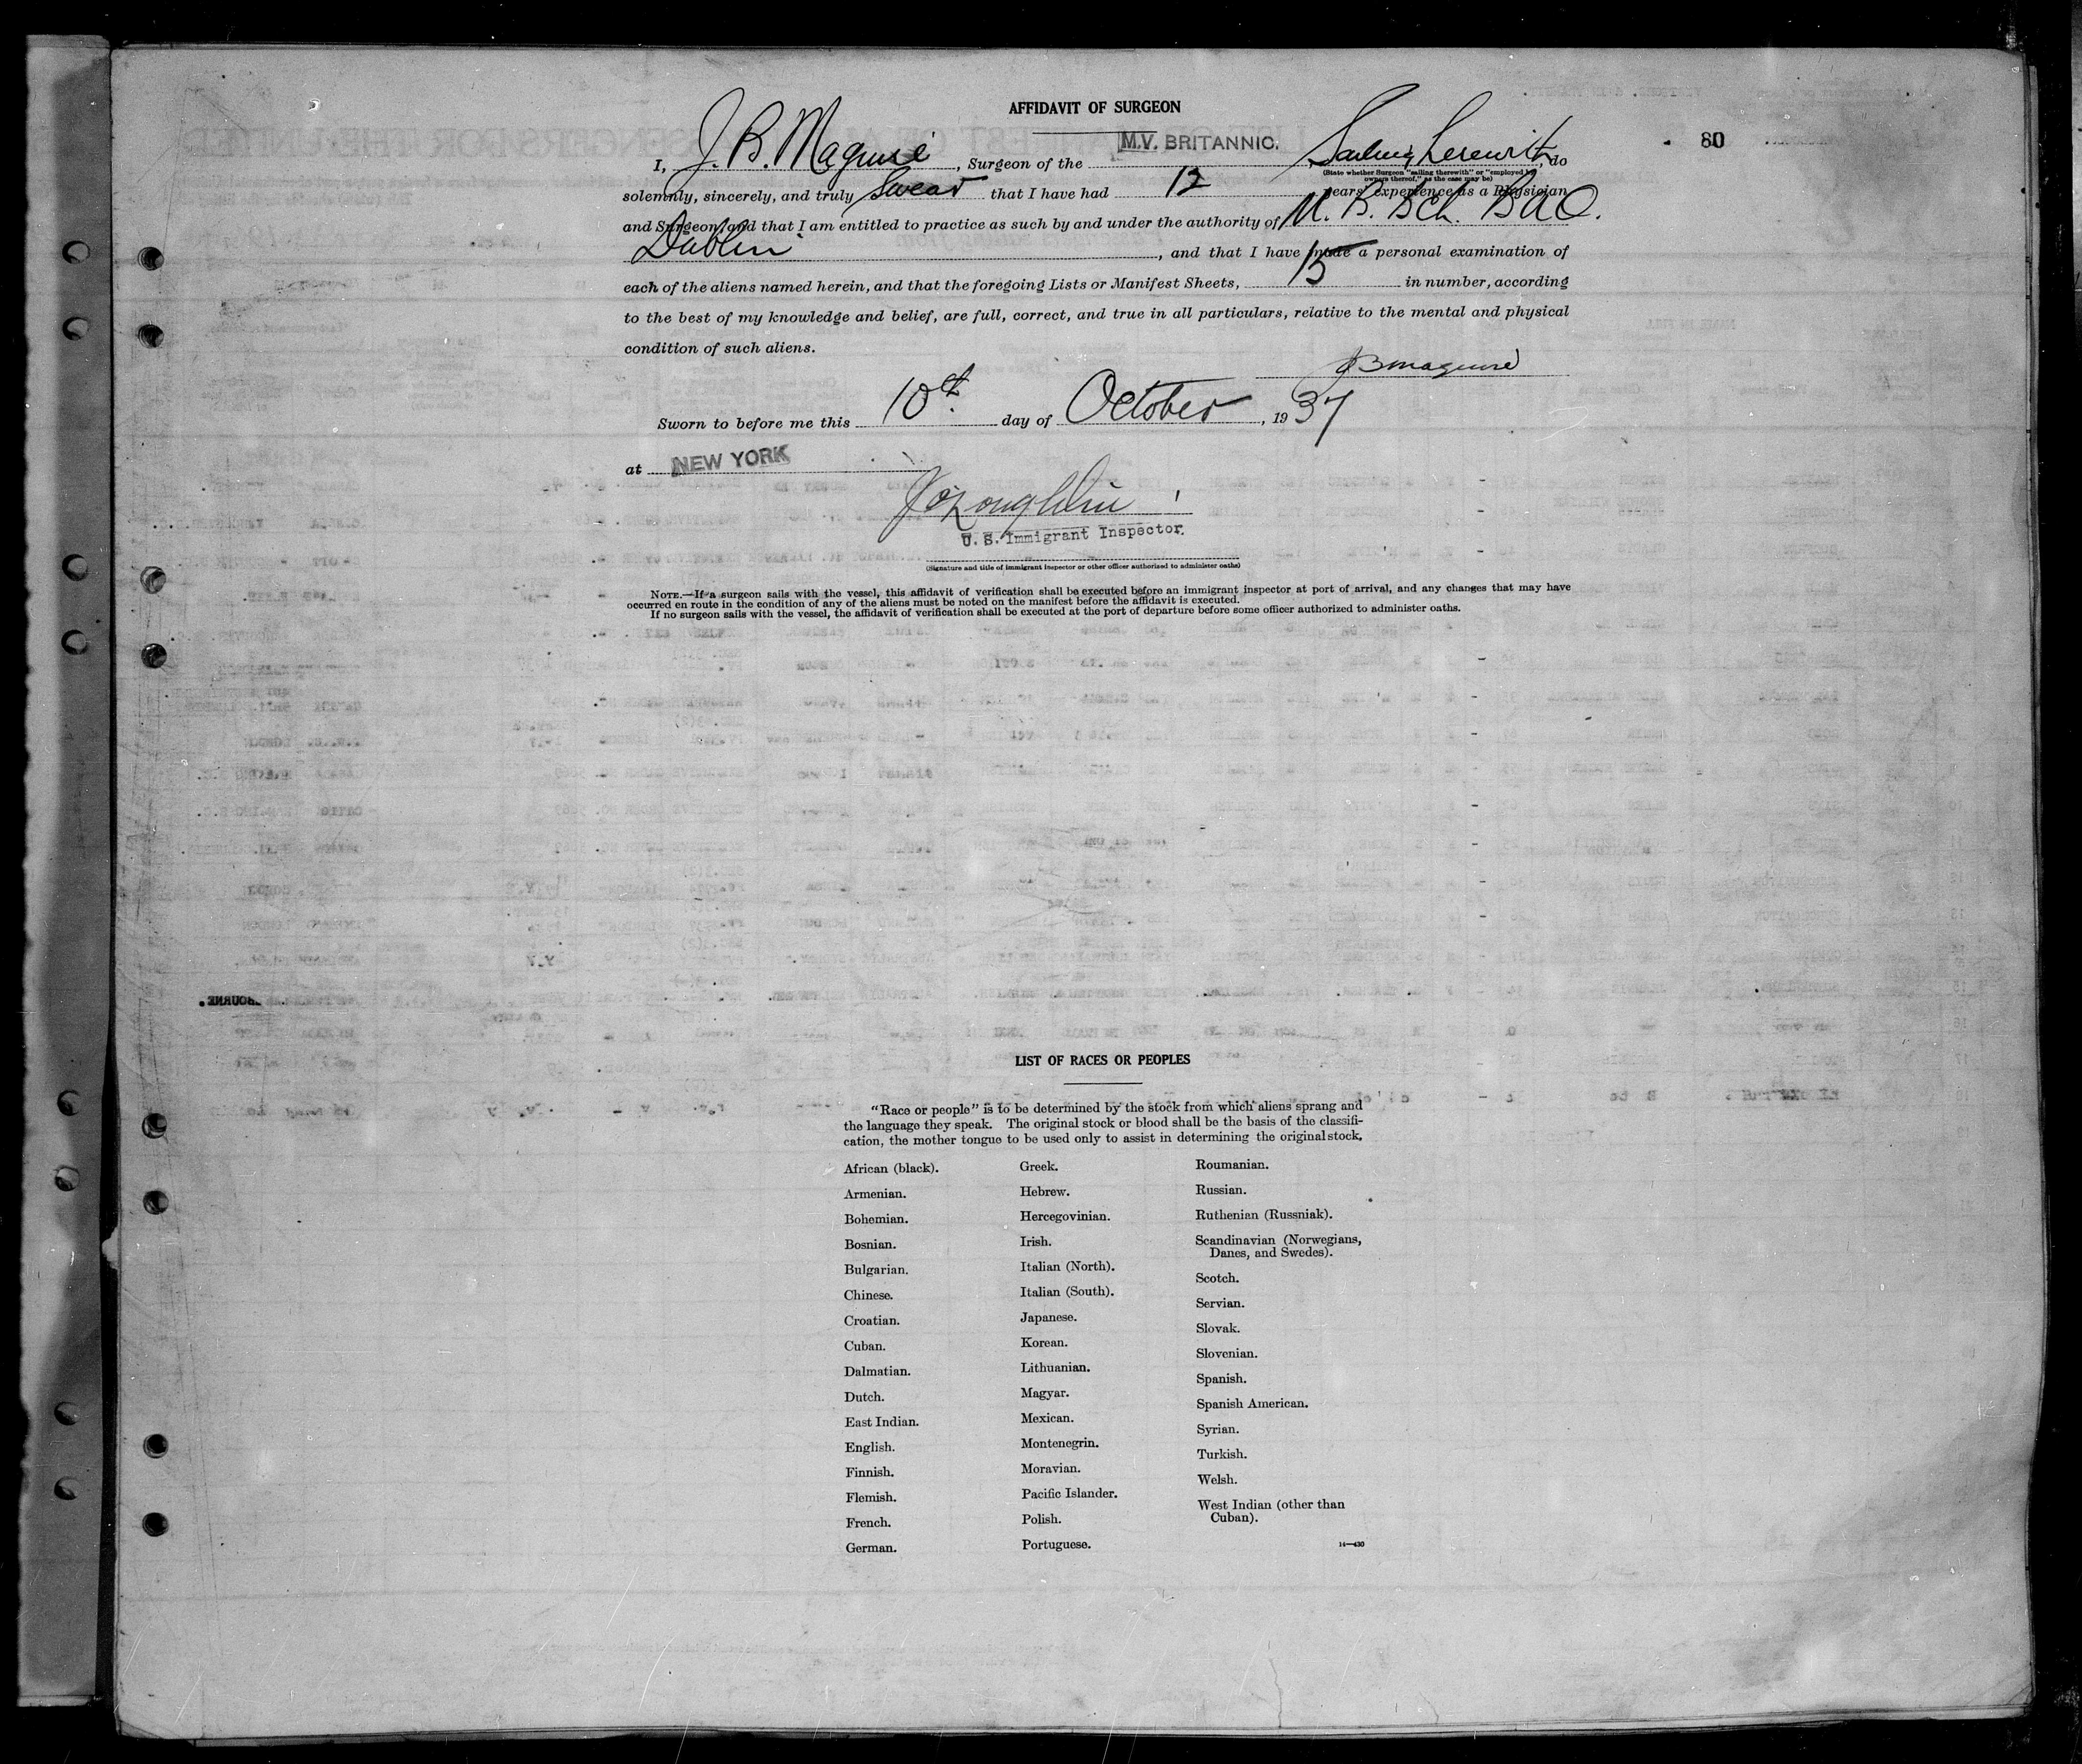 AFFIDAVIT OF SURGEON
80
I, J. B. Maguire, Surgeon of the M.V. BRITANNIC. Sailing herewith, do
(State whether Surgeon "sailing therewith" or "employed by
owners thereof," as the case may be)
solemnly, sincerely, and truly Swear that I have had 12 years' experience as a Physician
and Surgeon, and that I am entitled to practice as such by and under the authority of M. B. BCh. BAO.
Dublin, and that I have made a personal examination of
each of the aliens named herein, and that the foregoing Lists or Manifest Sheets, 15 in number, according
to the best of my knowledge and belief, are full, correct, and true in all particulars, relative to the mental and physical
condition of such aliens.
JB Maguire
Sworn to before me this 10th day of October, 1937
at NEW YORK
U. S. Immigrant Inspector.
(Signature and title of immigrant inspector or other officer authorized to administer oaths)
NOTE.—If a surgeon sails with the vessel, this affidavit of verification shall be executed before an immigrant inspector at port of arrival, and any changes that may have
occurred en route in the condition of any of the aliens must be noted on the manifest before the affidavit is executed.
If no surgeon sails with the vessel, the affidavit of verification shall be executed at the port of departure before some officer authorized to administer oaths.
LIST OF RACES OR PEOPLES
"Race or people" is to be determined by the stock from which aliens sprang and
the language they speak. The original stock or blood shall be the basis of the classifi-
cation, the mother tongue to be used only to assist in determining the original stock.
African (black).
Armenian.
Bohemian.
Bosnian.
Bulgarian.
Chinese.
Croatian.
Cuban.
Dalmatian.
Dutch.
East Indian.
English.
Finnish.
Flemish.
French.
German.
Greek.
Hebrew.
Hercegovinian.
Irish.
Italian (North).
Italian (South).
Japanese.
Korean.
Lithuanian.
Magyar.
Mexican.
Montenegrin.
Moravian.
Pacific Islander.
Polish.
Portuguese.
Roumanian.
Russian.
Ruthenian (Russniak).
Scandinavian (Norwegians,
Danes, and Swedes).
Scotch.
Servian.
Slovak.
Slovenian.
Spanish.
Spanish American.
Syrian.
Turkish.
Welsh.
West Indian (other than
Cuban).
14—430